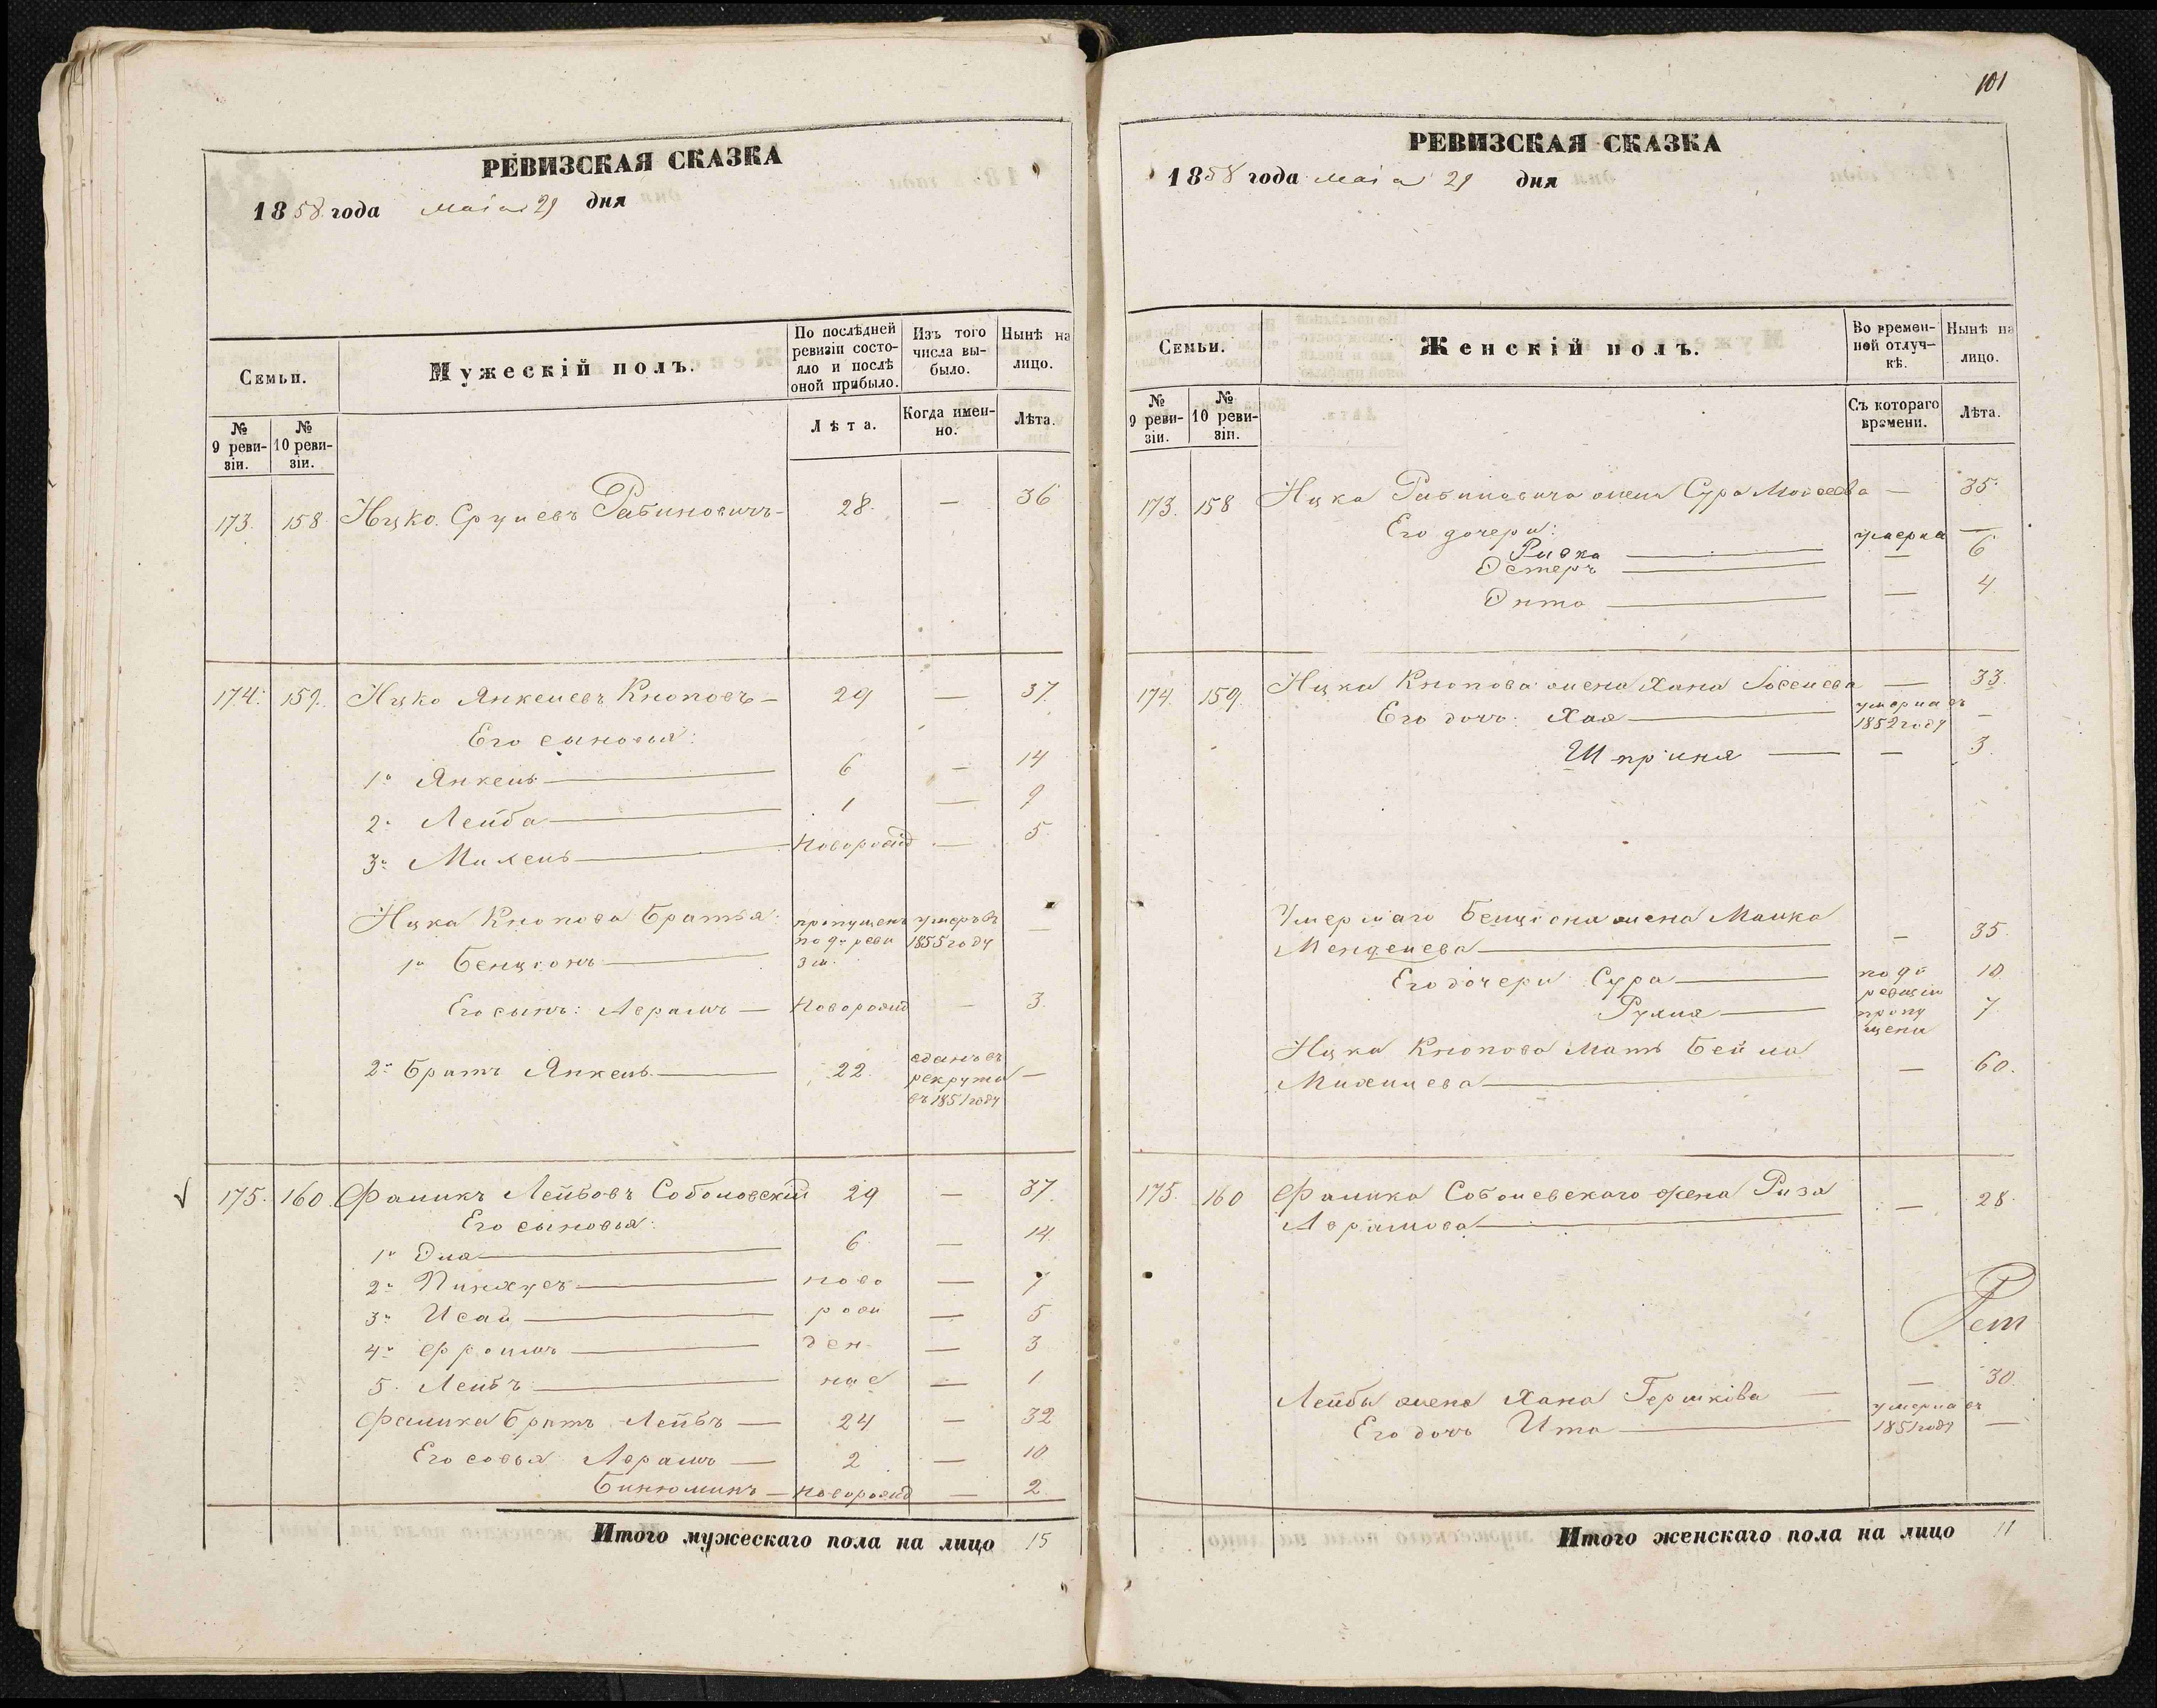 РЕВИЗСКАЯ СКАЗКА
1858 года Маія 29 дня
Семьи.
Мужескій полъ.
По послѣдней ревизіи состояло и послѣ оной прибыло.
Изъ того числа выбыло.
Нынѣ на лицо.
№ 9 ревизіи.
№ 10 ревизіи.
Лѣта.
Когда именно.
Лѣта.
173. 158 Ицко Срулевъ Рабиновичъ 28. — 36
174. 159. Ицко Янкелевъ Кноповъ — 29 — 37
Его сыновья:
1й Янкель — 6 — 14
2й Лейба — 1 — 9
3й Михель — Новорожд — 5
Ицка Кнопова Братья:
1й Бенціонъ — пропущенъ по 9й ревизіи. умеръ въ 1855 году —
Его сынъ: Аврамъ — Новорожд — 3
2й Братъ Янкель — 22. сданъ въ рекруты въ 1851 году —
175. 160 Фаликъ Лейбовъ Соболовскій 29 — 37.
Его сыновья:
1й Эля — 6 — 14
2й Пинхусъ — ново — 7
3й Исай — рож — 5
4й Фроимъ — ден — 3
5. Лейбъ — ные — 1
Фалика Братъ Лейбъ — 24 — 32
Его совья Аврамъ — 2 — 10
Бинюминъ — Новорожд — 2
Итого мужескаго пола на лицо 15
101
РЕВИЗСКАЯ СКАЗКА
1858 года Маія 29 дня
Семьи.
Женскій полъ.
Во временной отлучкѣ.
Нынѣ на лицо.
№ 9 ревизіи.
№ 10 ревизіи.
Съ котораго времени.
Лѣта.
173. 158 Ицка Рабиновича жена Сура Мошеева — 35
Его дочери:
Ривка — умерла —
Эстеръ — — 6
Энта — — 4
174. 159. Ицка Кнопова жена Хана Іоселева — 33.
Его дочь: Хая — умерла въ 1852 году —
Шприня — — 3.
Умершаго Бенціона жена Малка
Менделева — — 35.
Его дочери Сура — по 9й ревизіи пропущены 10
Рухля — 7
Ицка Кнопова Мать Бейла
Михилева — — 60.
175. 160 Фалика Соболевскаго жена Риза
Аврамова — — 28.
Лейбы жена Хана Гершкова — — 30
Его дочь Ита — умерла въ 1851 году —
Итого женскаго пола на лицо 11